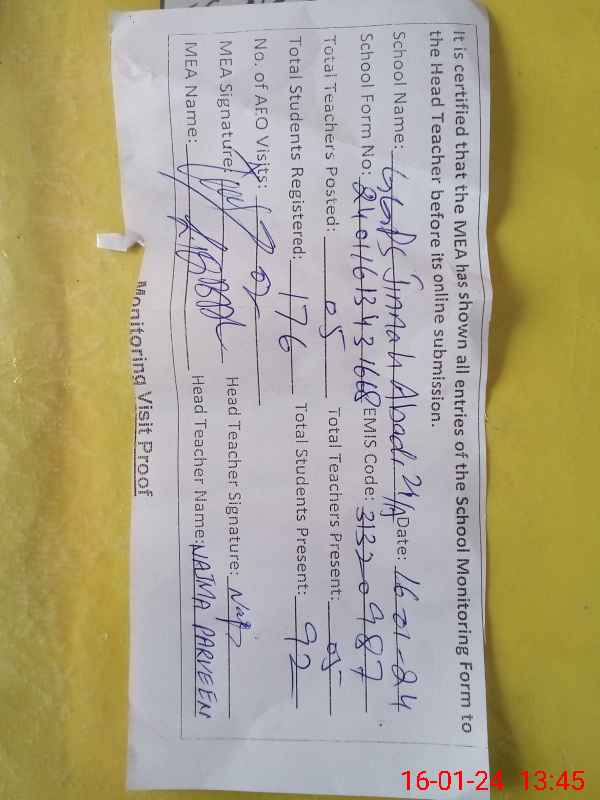 It is certified that the MEA has shown all entries of the School Monitoring Form to
the Head Teacher before its online submission.
School Name: GGPS Jinnah Abadi 24/A Date: 16-01-24
School Form No: 24011613431668 EMIS Code: 31320987
Total Teachers Posted: 05 Total Teachers Present: 05
Total Students Registered: 176 Total Students Present: 92
No. of AEO Visits: 02
MEA Signature: Head Teacher Signature:
MEA Name: Head Teacher Name: NAJMA PARVEEN
Monitoring Visit Proof
16-01-24 13:45